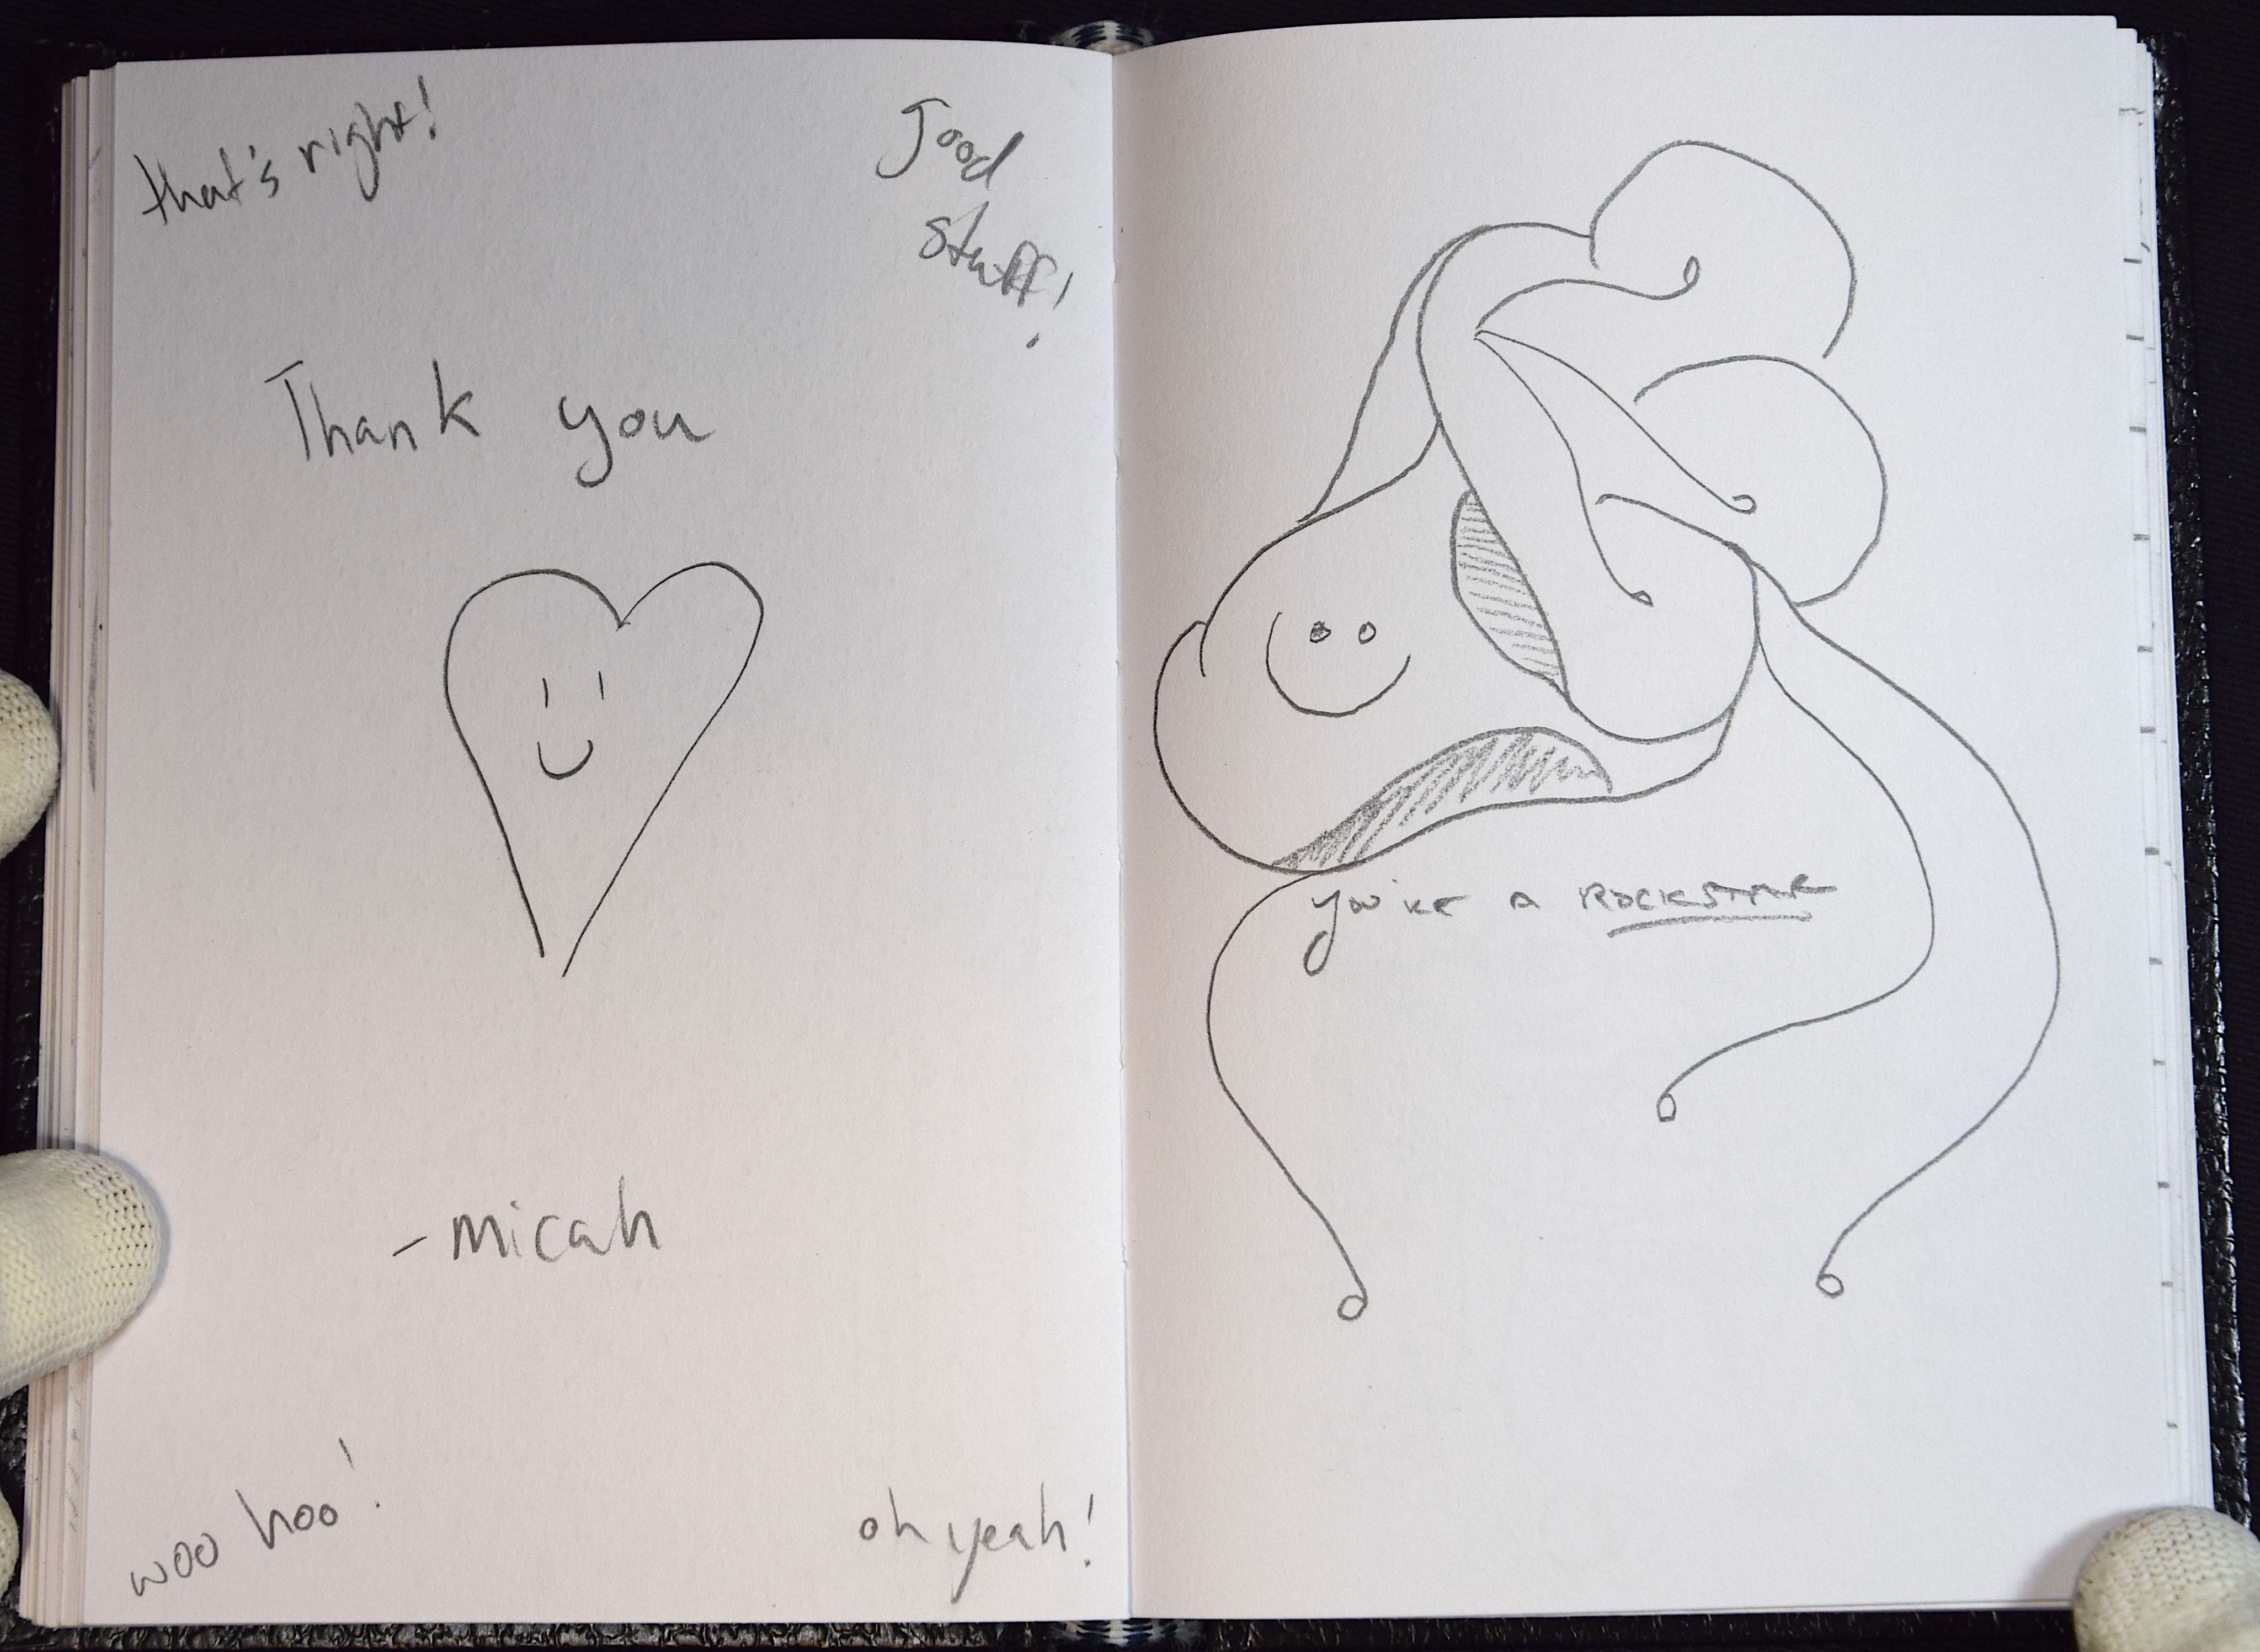 that's right!
Good
stuff!
Thank you
- micah
woo hoo!
oh yeah!
you're a ROCKSTAR